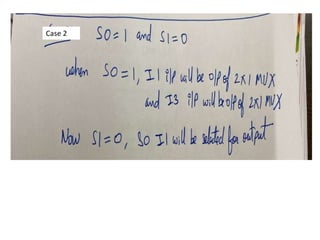 Case 2
S0=1 and S1=0
when S0=1, I1 i/p will be o/p of 2x1 MUX
and I3 i/p will be o/p of 2x1 MUX
Now S1=0, so I1 will be selected for output